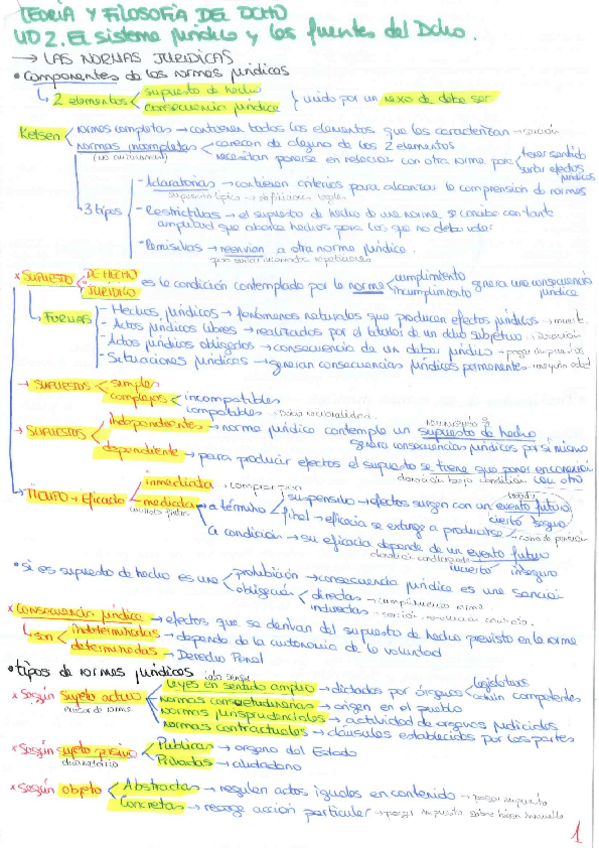 TEORÍA Y FILOSOFÍA DEL DCHO
UD 2. El sistema jurídico y las fuentes del Dcho.
→ LAS NORMAS JURÍDICAS
• Componentes de las normas jurídicas
↳ 2 elementos supuesto de hecho
consecuencia jurídica } unido por un nexo de deber ser
Kelsen normas completas → contienen todos los elementos que las caracterizan → sanción
normas incompletas carecen de alguno de los 2 elementos
(no autónomas) necesitan ponerse en relación con otra norma para tener sentido
surtir efectos jurídicos
3 tipos - Aclaratorias → contienen criterios para alcanzar la comprensión de normas
definiciones legales
- Restrictivas → el supuesto de hecho de una norma se concibe con tanta
amplitud que abarca hechos para los que no debe valer
- Remisivas → reenvían a otra norma jurídica.
para evitar innecesarias repeticiones
* SUPUESTO DE HECHO
JURÍDICO es la condición contemplada por la norma cumplimiento
incumplimiento genera una consecuencia jurídica
↳ FORMAS - Hechos jurídicos → fenómenos naturales que producen efectos jurídicos → muerte
- Actos jurídicos libres → realizados por el titular de un dcho subjetivo
- Actos jurídicos obligados → consecuencia de un deber jurídico → pagar impuestos
- Situaciones jurídicas → generan consecuencias jurídicas permanentes → mayoría edad
→ SUPUESTOS simples
complejos incompatibles
compatibles
→ SUPUESTOS independientes → norma jurídica contempla un supuesto de hecho
genera consecuencias jurídicas por sí mismo
dependiente → para producir efectos el supuesto se tiene que poner en conexión
donación bajo condición con otro
→ TIEMPO → Eficacia inmediata → compra pan
mediata → a término suspensivo → efectos surgen con un evento futuro
final → eficacia se extingue al producirse cierto seguro
a condición → su eficacia depende de un evento futuro
incierto inseguro
• si es supuesto de hecho es una prohibición → consecuencia jurídica es una sanción
obligación directas → cumplimiento norma
indirectas → sanción
* Consecuencia jurídica → efectos que se derivan del supuesto de hecho previsto en la norma
↳ son indeterminadas → depende de la autonomía de la voluntad
determinadas → Derecho Penal
• tipos de normas jurídicas
* Según sujeto activo leyes en sentido amplio → dictadas por órganos legislativos
competentes
normas consuetudinarias → origen en el pueblo
normas jurisprudenciales → actividad de órganos judiciales
normas contractuales → cláusulas establecidas por las partes
* Según sujeto pasivo Públicas → órgano del Estado
destinatario Privadas → ciudadano
* Según objeto Abstractas → regulan actos iguales en contenido → pagar impuesto
Concretas → recoge acción particular → pagar impuesto sobre bien inmueble
1